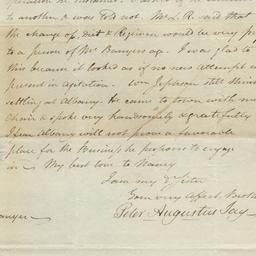 to another & was told not. Mr. L. R. said that
the change of diet & Regimen would be very
to a person of Mr Banyers age. I was glad to
this because it looked as if no new attempt
present in agitation. Wm Jephson still thinks
settling at Albany. He came to town with me
& spoke very handsomely & gratefully
I fear Albany will not prove a favorable
place for the Business he proposes to engage
in — My best love to Nancy
I am my Dr Sister
Your very affect. Brother
Peter Augustus Jay